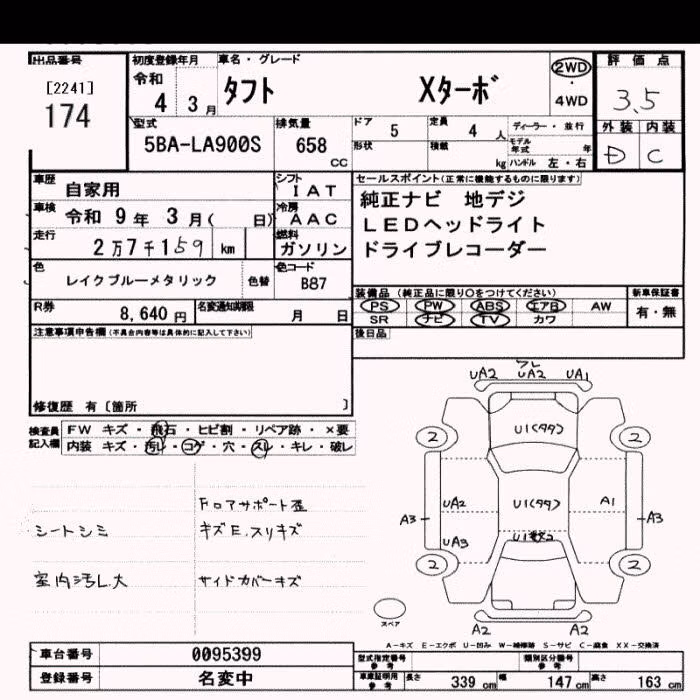 出品番号
[2241]
174
初度登録年月
令和
4 3月
車名・グレード
タフト Xターボ
2WD
・
4WD
評価点
3.5
型式
5BA-LA900S
排気量
658
cc
ドア 5
定員 4 人
形状
積載 kg
ディーラー・並行
モデル年式 年
ハンドル 左・右
外装 内装
D C
車歴 自家用
シフト IAT
車検 令和 9年 3月( 日)
冷房 AAC
走行 2万7千159 km
燃料 ガソリン
色 レイクブルーメタリック 色替
色コード B87
セールスポイント(正常に機能するものに限ります)
純正ナビ 地デジ
LEDヘッドライト
ドライブレコーダー
装備品(純正品に限り○をつけてください)
新車保証書
PS PW ABS エアB AW
SR ナビ TV カワ
有・無
後日品
R券 8,640円
名変通知期限 月 日
注意事項申告欄(不具合内容等は具体的に記入して下さい)
修復歴 有〔箇所 〕
検査員記入欄
FW キズ・飛石・ヒビ割・リペア跡・×要
内装 キズ・汚れ・コゲ・穴・スレ・キレ・破レ
シートシミ
室内汚レ大
Fロアサポート歪
キズE、スリキズ
サイドカバーキズ
UA2 UA2 UA1
2 2
U1(タタ)
UA2 U1(タタ) A1
A3 A3
UA3
2 2
A2 A2
スペア
A-キズ E-エクボ U-凹み W-補修跡 S-サビ C-腐食 XX-交換済
車台番号 0095399
登録番号 名変中
型式指定番号 参考
類別区分番号 参考
車庫証明用 参考
長さ 339 cm 幅 147 cm 高さ 163 cm